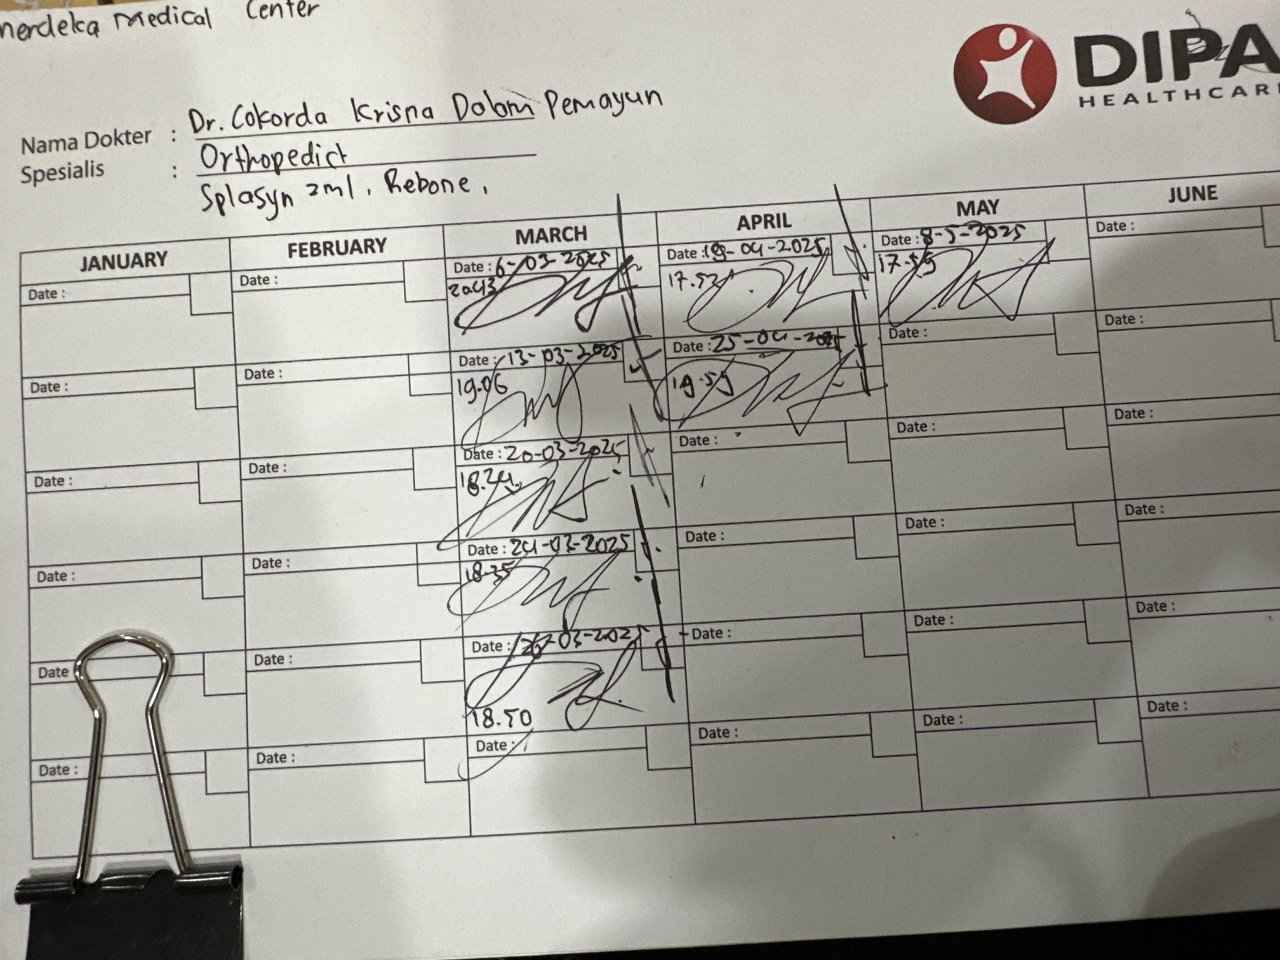 merdeka Medical Center
DIPA
HEALTHCAR
Nama Dokter : Dr. Cokorda Krisna Dalam Pemayun
Spesialis : Orthopedict
Splasyn 2ml, Rebone,
JANUARY FEBRUARY MARCH APRIL MAY JUNE
Date : Date : Date : 6-03-2025 Date : 18-04-2025 Date : 8-5-2025 Date :
17.53 17.55
Date : Date : Date : 13-03-2025 Date : 25-04-2025 Date : Date :
19.06 19.55
Date : Date : Date : 20-03-2025 Date : Date : Date :
18.24
Date : Date : Date : 24-03-2025 Date : Date : Date :
18.35
Date Date : Date : 26-03-2025 Date : Date : Date :
18.50
Date : Date : Date : Date : Date : Date :